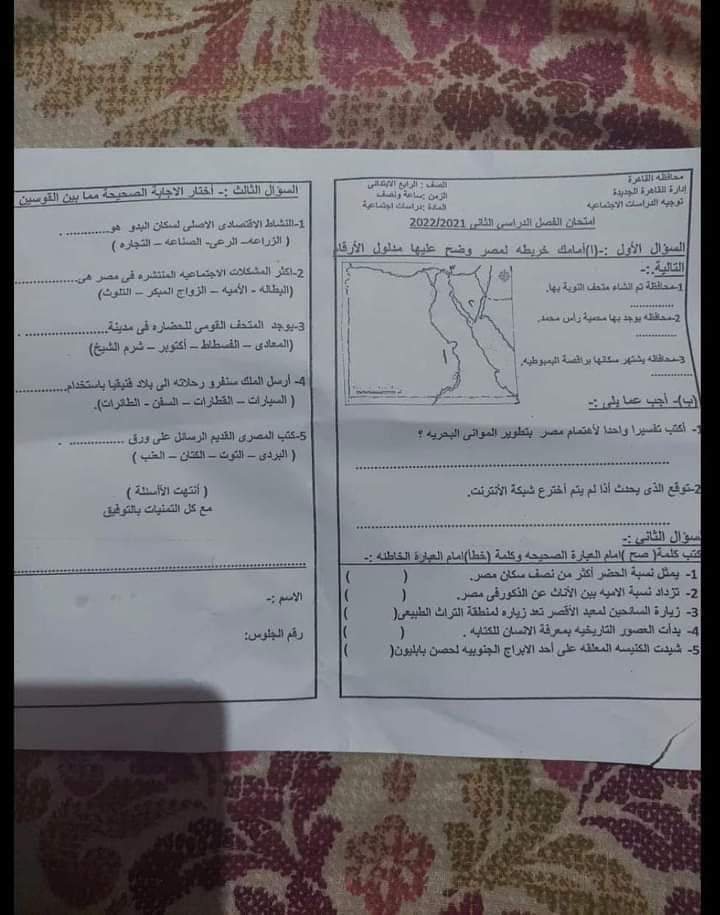 محافظه القاهرة
إدارة القاهرة الجديدة
توجيه الدراسات الاجتماعيه
الصف : الرابع الابتدائى
الزمن :ساعة ونصف
المادة :دراسات اجتماعية
امتحان الفصل الدراسي الثانى 2022/2021
السؤال الأول :-(ا)أمامك خريطه لمصر وضح عليها مدلول الأرقا
التالية:-
1-محافظة تم انشاء متحف النوبة بها.
..............
2-محافظه يوجد بها محمية رأس محمد.
..............
3-محافظه يشتهر سكانها برقصة البمبوطيه.
..............
١
٢
٣
(ب)- أجب عما يلى :-
1- أكتب تفسيرا واحدا لأهتمام مصر بتطوير الموانى البحريه ؟
..............................................
2-توقع الذى يحدث إذا لم يتم أخترع شبكة الأنترنت.
..............................................
سؤال الثانى :-
كتب كلمة( صح )امام العبارة الصحيحه وكلمة (خطأ)امام العبارة الخاطئه :-
1- يمثل نسبة الحضر أكثر من نصف سكان مصر. ( )
2- تزداد نسبة الاميه بين الأناث عن الذكورفى مصر. ( )
3- زيارة السائحين لمعبد الأقصر تعد زياره لمنطقة التراث الطبيعى( )
4- بدأت العصور التاريخيه بمعرفة الانسان للكتابه . ( )
5- شيدت الكنيسه المعلقه على أحد الابراج الجنوبيه لحصن بابليون( )
السؤال الثالث :- أختار الاجابة الصحيحة مما بين القوسين
1-النشاط الاقتصادى الاصلى لسكان البدو هو.............
( الزراعه- الرعى- الصناعه – التجاره )
2-اكثر المشكلات الاجتماعيه المنتشره فى مصر هى.............
(البطاله - الأميه – الزواج المبكر – التلوث)
3-يوجد المتحف القومى للحضاره فى مدينة.............
(المعادى – الفسطاط – أكتوبر – شرم الشيخ)
4- أرسل الملك سنفرو رحلاته الى بلاد فنيقيا باستخدام.............
( السيارات – القطارات – السفن - الطائرات).
5-كتب المصرى القديم الرسائل على ورق .............
( البردى – التوت – الكتان – العنب )
( أنتهت الأسئلة )
مع كل التمنيات بالتوفيق
الاسم :-
رقم الجلوس: